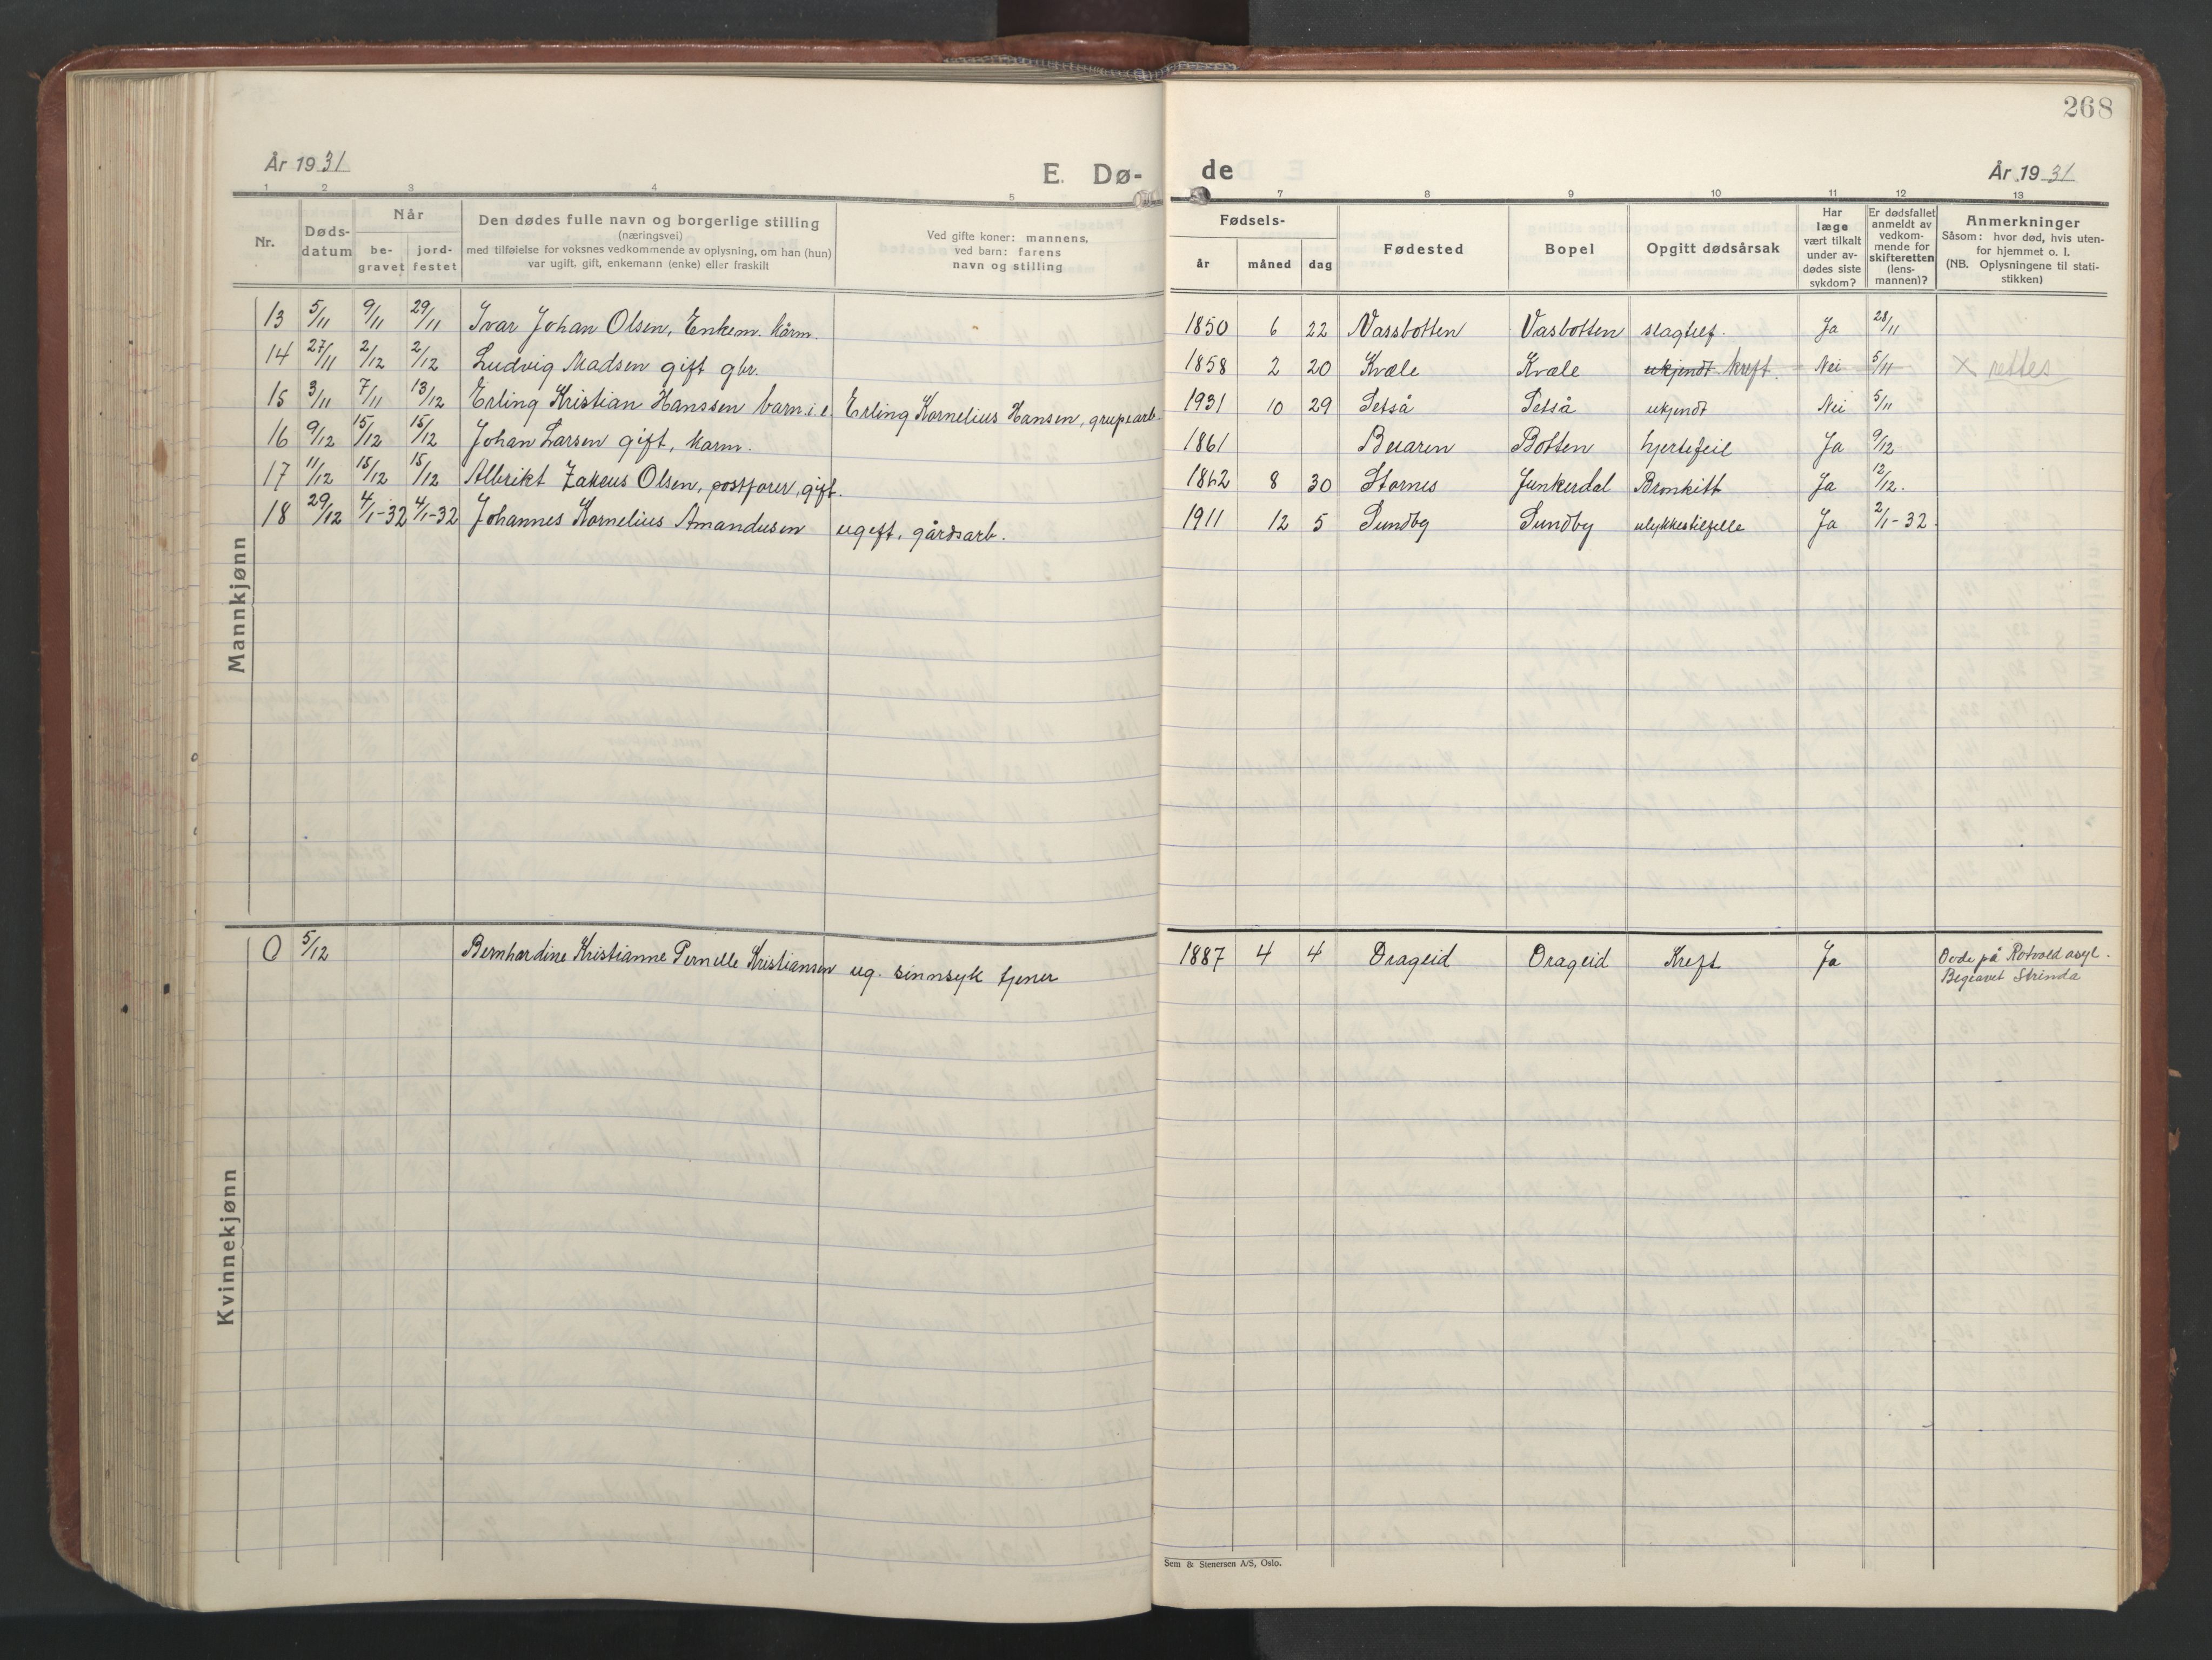 268
År 1931
E. Dø-
de
År 1931
1 2 3 4 5 7 8 9 10 11 12 13
Nr.
Døds-
datum
Når
be-
gravet
jord-
festet
Den dødes fulle navn og borgerlige stilling
(næringsvei)
med tilføielse for voksnes vedkommende av oplysning, om han (hun)
var ugift, gift, enkemann (enke) eller fraskilt
Ved gifte koner: mannens,
ved barn: farens
navn og stilling
Fødsels-
år
måned
dag
Fødested
Bopel
Opgitt dødsårsak
Har
læge
vært tilkalt
under av-
dødes siste
sykdom?
Er dødsfallet
anmeldt av
vedkom-
mende for
skifteretten
(lens-
mannen)?
Anmerkninger
Såsom: hvor død, hvis uten-
for hjemmet o. l.
(NB. Oplysningene til stati-
stikken)
Mannkjønn
13 5/11 9/11 29/11 Ivar Johan Olsen, Enkem. kårm. 1850 6 22 Vassbotten Vasbotten slagtilf. Ja 28/11
14 27/11 2/12 2/12 Ludvig Madsen gift gbr. 1858 2 20 Kvæle Kvæle ukjendt kreft. Nei 5/11 × rettes
15 3/11 7/11 13/12 Erling Kristian Hanssen barn i. e. Erling Kornelius Hansen, grubearb. 1931 10 29 Setså Setså ukjendt Nei 5/11
16 9/12 15/12 15/12 Johan Larsen gift, kårm. 1861 Buaren Botten hjertefeil Ja 9/12
17 11/12 15/12 15/12 Albrikt Zakeus Olsen, postfører, gift. 1862 8 30 Stornes Junkerdal Bronkitt Ja 12/12.
18 29/12 4/1-32 4/1-32 Johannes Kornelius Amandusen ugift, gårdsarb. 1911 12 5 Sundby Sundby ulykkestilfelle Ja 2/1-32.
Kvinnekjønn
0 5/12 Bernhardine Kristianne Pernelle Kristiansen ug. sinnsyk tjener 1887 4 4 Drageid Drageid Kreft Ja Døde på Rotvold asyl.
Begravet Strinda
Sem & Stenersen A/S, Oslo.